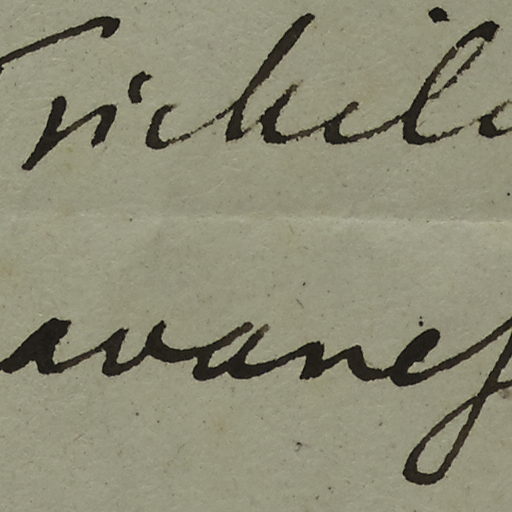 Trichil
avanes